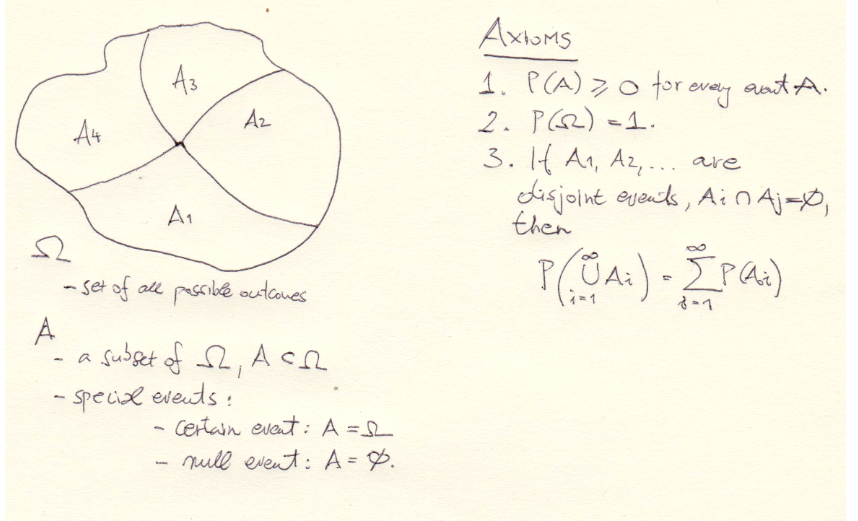 A3
A4
A2
A1
Ω
- set of all possible outcomes
A
- a subset of Ω, A ⊂ Ω
- special events:
- certain event: A = Ω
- null event: A = ∅.
Axioms
1. P(A) ⩾ 0 for every event A.
2. P(Ω) = 1.
3. If A1, A2, ... are
disjoint events, Ai ∩ Aj = ∅,
then
P(⋃_{i=1}^{∞} Ai) = ∑_{i=1}^{∞} P(Ai)